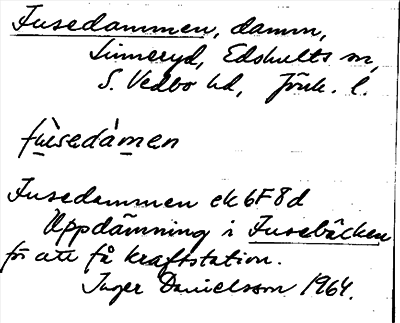 Fusedammen, damm,
Linneryd, Edshults sn,
S. Vedbo hd, Jönk. l.
fùsedámen
Fusedammen ek 6F8d
Uppdämning i Fusebäcken
för att få kraftstation.
Inger Danielsson 1964.